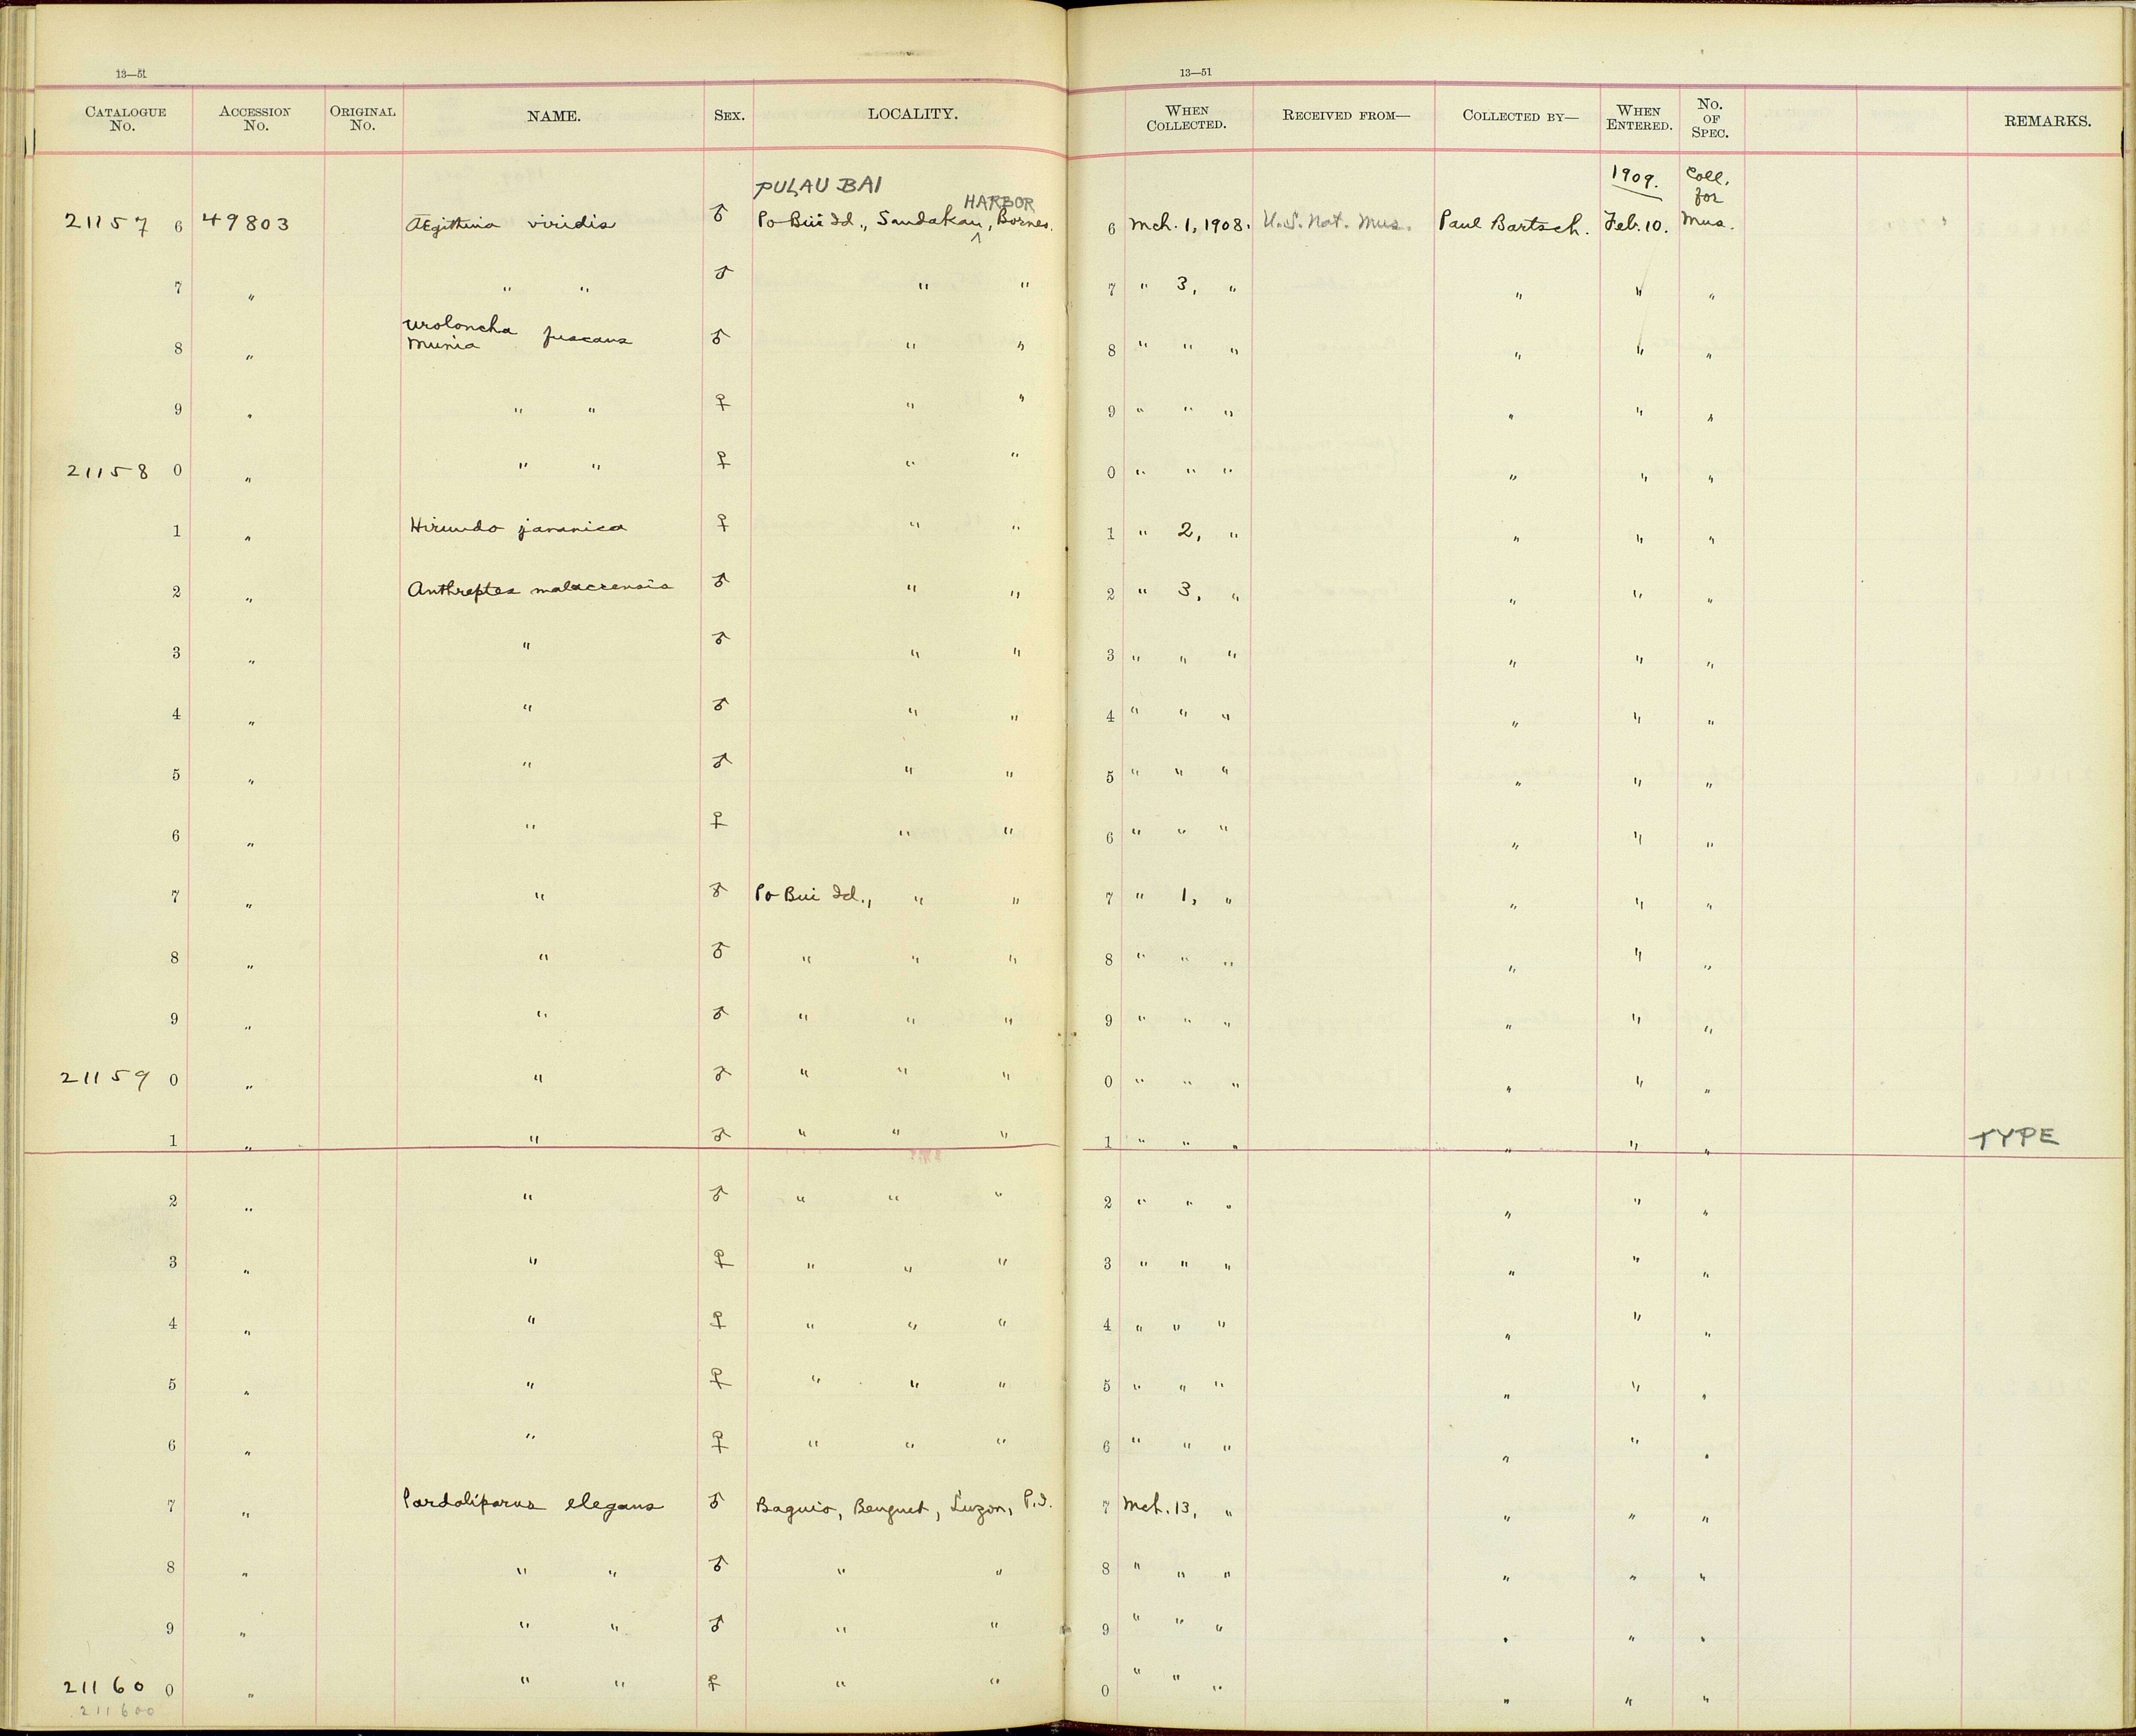 13—51
13—51
CATALOGUE No. ACCESSION No. ORIGINAL No. NAME. SEX. LOCALITY. WHEN COLLECTED. RECEIVED FROM— COLLECTED BY— WHEN ENTERED. No. OF SPEC. REMARKS.
PULAU BAI 1909. Coll.
HARBOR for
21157 6 49803 Ægithina viridis ♂ Po Bui Id., Sandakan, ^ Borneo. 6 Mch. 1, 1908. U.S. Nat. Mus. Paul Bartsch. Feb. 10. Mus.
7 " " " ♂ " " 7 " 3, " " " "
Uroloncha
8 " Munia fuscans ♂ " " 8 " " " " " "
9 " " " ♀ " " 9 " " " " " "
21158 0 " " " ♀ " " 0 " " " " " "
1 " Hirundo javanica ♀ " " 1 " 2, " " " "
2 " Anthreptes malaccensis ♂ " " 2 " 3, " " " "
3 " " ♂ " " 3 " " " " " "
4 " " ♂ " " 4 " " " " " "
5 " " ♂ " " 5 " " " " " "
6 " " ♀ " " 6 " " " " " "
7 " " ♂ Po Bui Id., " " 7 " 1, " " " "
8 " " ♂ " " " 8 " " " " " "
9 " " ♂ " " " 9 " " " " " "
21159 0 " " ♂ " " " 0 " " " " " "
1 " " ♂ " " " 1 " " " " " " TYPE
2 " " ♂ " " " 2 " " " " " "
3 " " ♀ " " " 3 " " " " " "
4 " " ♀ " " " 4 " " " " " "
5 " " ♀ " " " 5 " " " " " "
6 " " ♀ " " " 6 " " " " " "
7 " Pardaliparus elegans ♂ Baguio, Benguet, Luzon, P.I. 7 Mch. 13, " " " "
8 " " " ♂ " " 8 " " " " " "
9 " " " ♂ " " 9 " " " " " "
21160 0 " " " ♀ " " 0 " " " " " "
211600